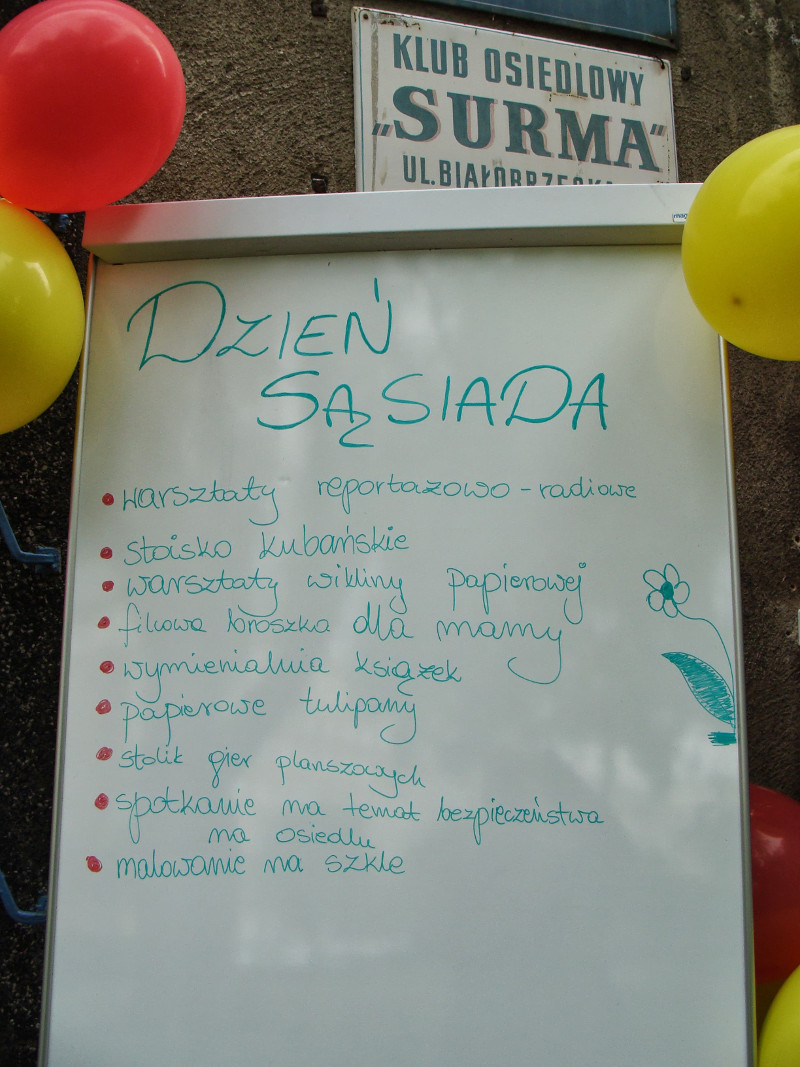 KLUB OSIEDLOWY
„SURMA”
UL. BIAŁOBRZESKA
DZIEŃ
SĄSIADA
warsztaty reportażowo - radiowe
stoisko kubańskie
warsztaty wikliny papierowej
filcowa broszka dla mamy
wymienialnia książek
papierowe tulipany
stolik gier planszowych
spotkanie na temat bezpieczeństwa
na osiedlu
malowanie na szkle